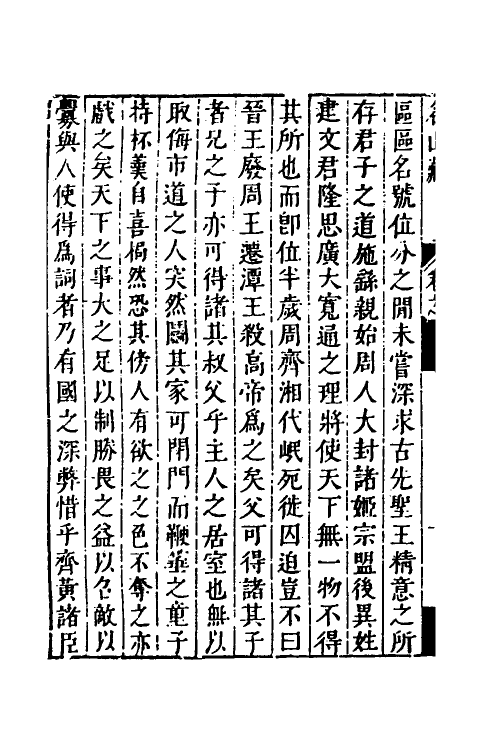 區區名號位分之閒未嘗深求古先聖王精意之所
存君子之道施繇親始周人大封諸姬宗盟後異姓
建文君隆思廣大寬通之理將使天下無一物不得
其所也而卽位半歲周齊湘代岷死徙囚迫豈不曰
晉王廢周王遷潭王殺高帝爲之矣父可得諸其子
者兄之子亦可得諸其叔父乎主人之居室也無以
取侮市道之人突然鬬其家可閉門而鞭箠之童子
持杯羹自喜撊然恐其傍人有欲之之色不奪之亦
戲之矣天下之事大之足以制勝畏之益以召敵以
釁與人使得爲詞者乃有國之深弊惜乎齊黃諸臣